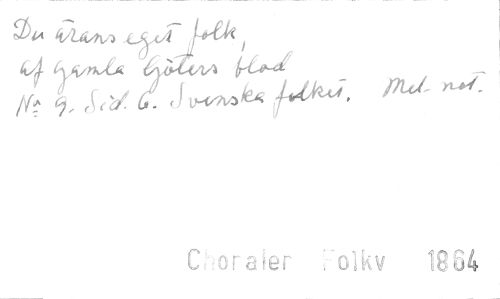 Du ärans eget folk,
af gamla Göters blod
Nr 9. Sid. 6. Svenska folket. Mel. not.
Choraler Folkv 1864